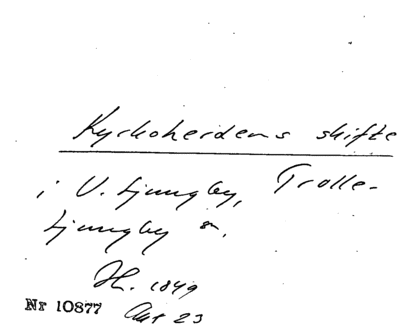 Kyrkoherdens skifte
i V. Ljungby, Trolle-
Ljungby sn.
1849
Nr 10877 Akt 23